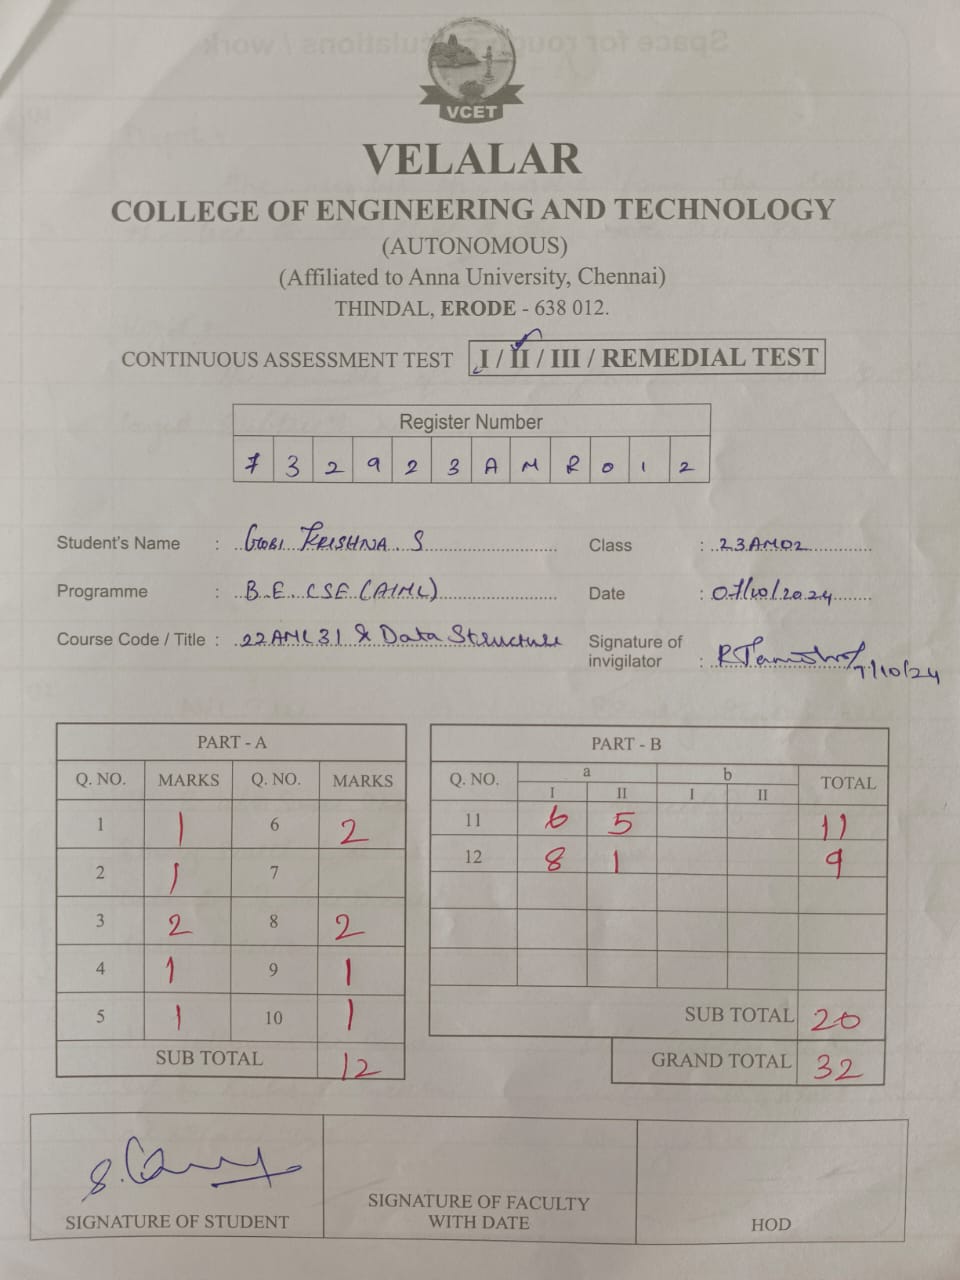 VCET
VELALAR
COLLEGE OF ENGINEERING AND TECHNOLOGY
(AUTONOMOUS)
(Affiliated to Anna University, Chennai)
THINDAL, ERODE - 638 012.
CONTINUOUS ASSESSMENT TEST I / II / III / REMEDIAL TEST
Register Number
7 3 2 9 2 3 A M R 0 1 2
Student's Name : GOBI KRISHNA S Class : 23AM02
Programme : B.E. CSE (AIML) Date : 07/10/2024
Course Code / Title : 22AML31 & Data Structure Signature of
invigilator : 7/10/24
PART - A
Q. NO. MARKS Q. NO. MARKS
1 1 6 2
2 1 7
3 2 8 2
4 1 9 1
5 1 10 1
SUB TOTAL 12
PART - B
Q. NO. a b TOTAL
I II I II
11 6 5 11
12 8 1 9
SUB TOTAL 20
GRAND TOTAL 32
SIGNATURE OF STUDENT
SIGNATURE OF FACULTY
WITH DATE
HOD